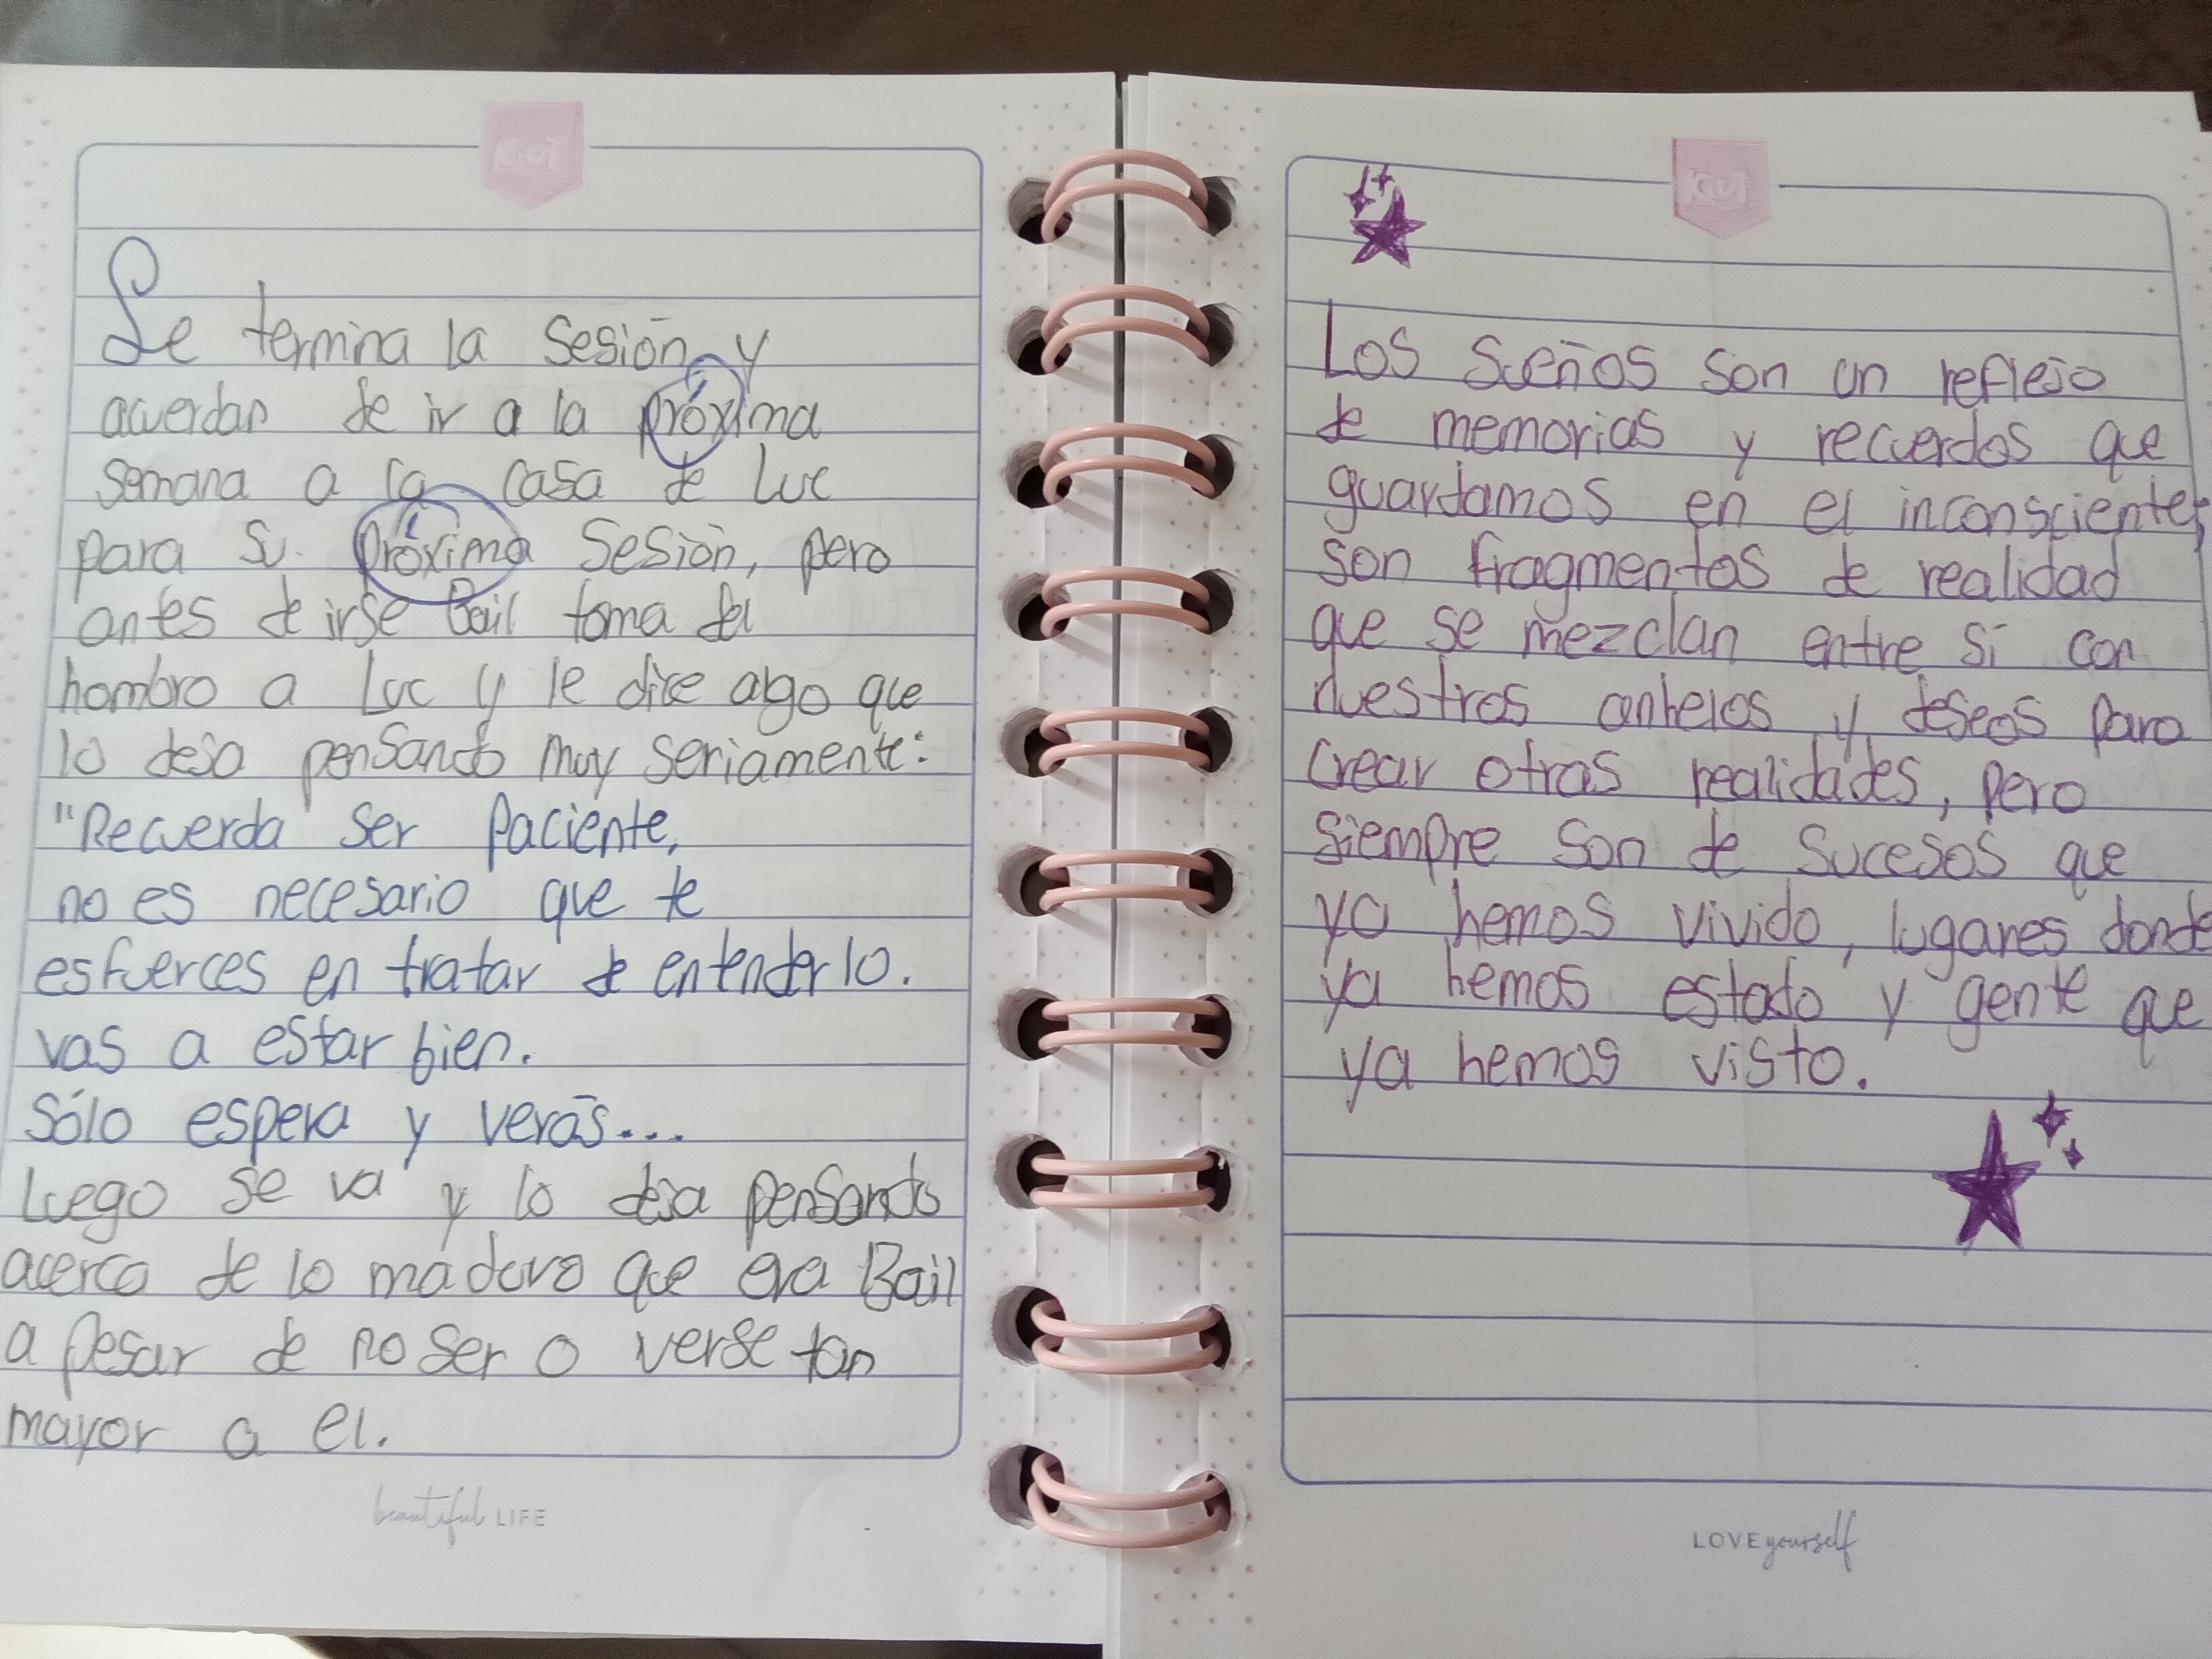 Kiut
Se termina la sesión y
acuerdan de ir a la próxima
semana a la casa de Luc
para su próxima sesión, pero
antes de irse Bail toma del
hombro a Luc y le dice algo que
lo deja pensando muy seriamente:
"Recuerda ser paciente,
no es necesario que te
esfuerces en tratar de entenderlo.
vas a estar bien.
Sólo espera y verás...
Luego se va y lo deja pensando
acerca de lo maduro que era Bail
a pesar de no ser o verse tan
mayor a el.
beautiful LIFE
Kiut
Los sueños son un reflejo
de memorias y recuerdos que
guardamos en el inconsciente,
son fragmentos de realidad
que se mezclan entre sí con
nuestros anhelos y deseos para
crear otras realidades, pero
siempre son de sucesos que
ya hemos vivido, lugares donde
ya hemos estado y gente que
ya hemos visto.
LOVE yourself